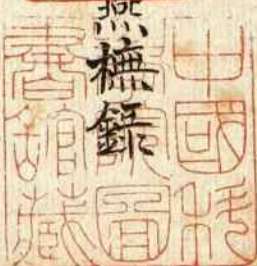 燕橅錄
中國科
學院圖
書館藏